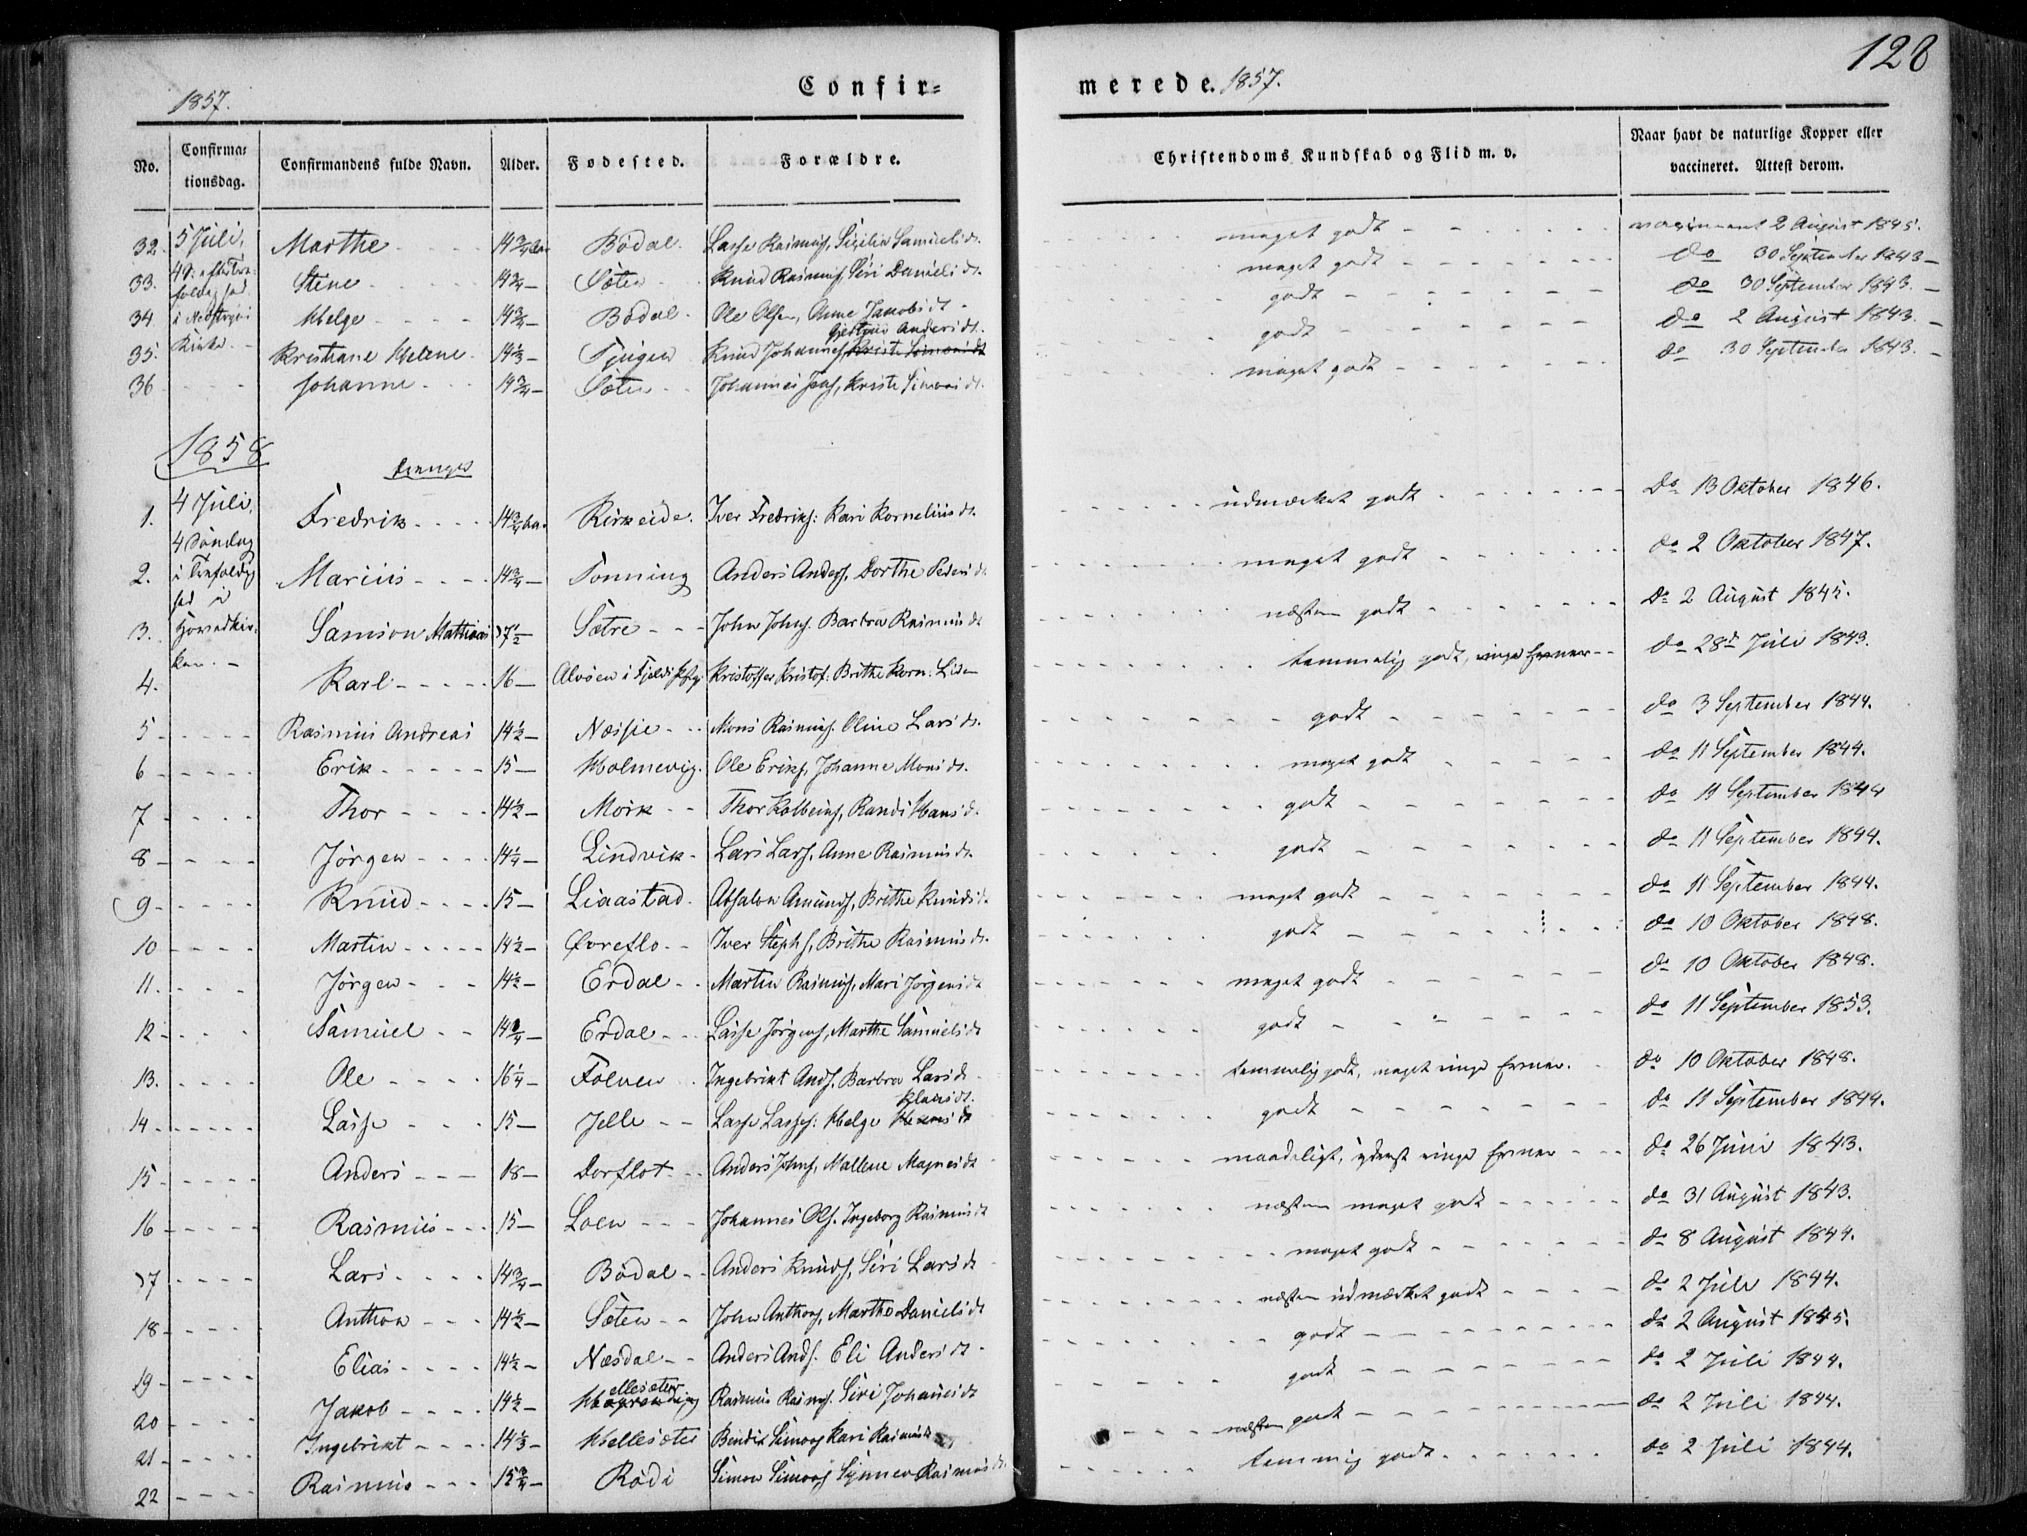 128
1857.
Confir=
merede. 1857.
No.
Confirma=
tionsdag.
Confirmandens fulde Navn.
Alder.
Fødested.
Forældre.
Christendoms Kundskab og Flid m. v.
Naar havt de naturlige Kopper eller
vaccineret. Attest derom.
32. 5 Juli, Marthe 14¾ Bødal. Lasse Rasmus, Sisilie Samuelsdt. meget godt 2 August 1845.
33. Stine 14¾ Sæten Knud Rasmus, Siri Danielsdt. meget godt do 30 September 1843
34. Helge 14¾ Bødal Ole Olsen, Anne Jakobsdt godt do 30 September 1843.
i Nedstryns
Kirke
35. Kristiane Helene 14⅓ Tjugen Knud Johannes, Kriste Simonsdt Gjertrud Andersdt. godt do 2 August 1843.
36 Johanne 14¾ Sæten Johannes Jens, Kriste Simonsdt. meget godt do 30 September 1843.
1858
Drenges
1. 4 Juli, Fredrik 14¾ Kirkeide. Iver Fredriks: Kari Korneliusdt. udmærket godt Do 13 Oktober 1846.
4 Søndag
2. i Trefoldig Marius 14¾ Tonning Anders Anders, Dorthe Pedersdt meget godt do 2 Oktober 1847.
3. Hovedkir Samson Mathias 17½ Sætre John Johns. Barbro Rasmusdt næsten godt Do 2 August 1845.
ken.
4. Karl 16 Alvøen i Fjeld Kristoffer Kristof: Brithe Korn: temmelig godt, ringe Evner do 28de Juli 1843.
5 Rasmus Andreas 14½ Næsje Mons Rasmus. Oline Larsdt. godt do 3 September 1844.
6 Erik 15 Holmevig. Ole Eriks, Johanne Monsdt. meget godt do 11 September 1844.
7 Thor 14½ Mork Thor Kolbeins, Randi Hansdt. godt do 11 September 1844
8 Jørgen 14¼ Lindvik Lars Lars. Anne Rasmusdt. godt do 11 September 1844.
9 Knud 15 Liaastad Absalon Amunds, Brithe Knudsdt. meget godt do 11 September 1844.
10 Martin 14½ Øvreflo Iver Stephs, Brithe Rasmusdt. godt do 10 Oktober 1848.
11. Jørgen 14½ Erdal Martin Rasmus, Mari Jørgensdt meget godt do 10 Oktober 1848.
12 Samuel 14¼ Erdal Lasse Jørgens, Marthe Samuelsdt godt do 11 September 1853.
13. Ole 16¼ Folven Ingebrikt Ands. Barbro Larsdt temmelig godt, meget ringe Evner. do 10 Oktober 1848.
14 Lasse 15 Jelle Lasse Lasses: Helge Klausdt. godt do 11 September 1844.
15 Anders 18 Dorflot Anders Johns, Mallene Magnesdt maadeligt, yderst ringe Evner do 26 Juni 1843.
16 Rasmus 15 Loen Johannes Ols. Ingeborg Rasmusdt næsten meget godt do 31 August 1843.
17 Lars 14¾ Bødal Anders Knuds, Siri Larsdt meget godt do 8 August 1844.
18 Anthon 14½ Sæten John Anthons, Marthe Danielsdt næsten udmærket godt do 2 Juli 1844.
19 Elias 14½ Næsdal Anders Ands. Eli Andersdt godt do 2 August 1845.
20 Jakob 14½ Hellesæter Rasmus Rasmus. Siri Johansdt godt do 2 Juli 1844.
21 Ingebrikt 14⅓ Hellesæter Bendix Simons Kari Rasmusdt næsten godt do 2 Juli 1844.
22 Rasmus 15¾ Rødi Simon Simons Synnev Rasmusdt. temmelig godt do 2 Juli 1844.